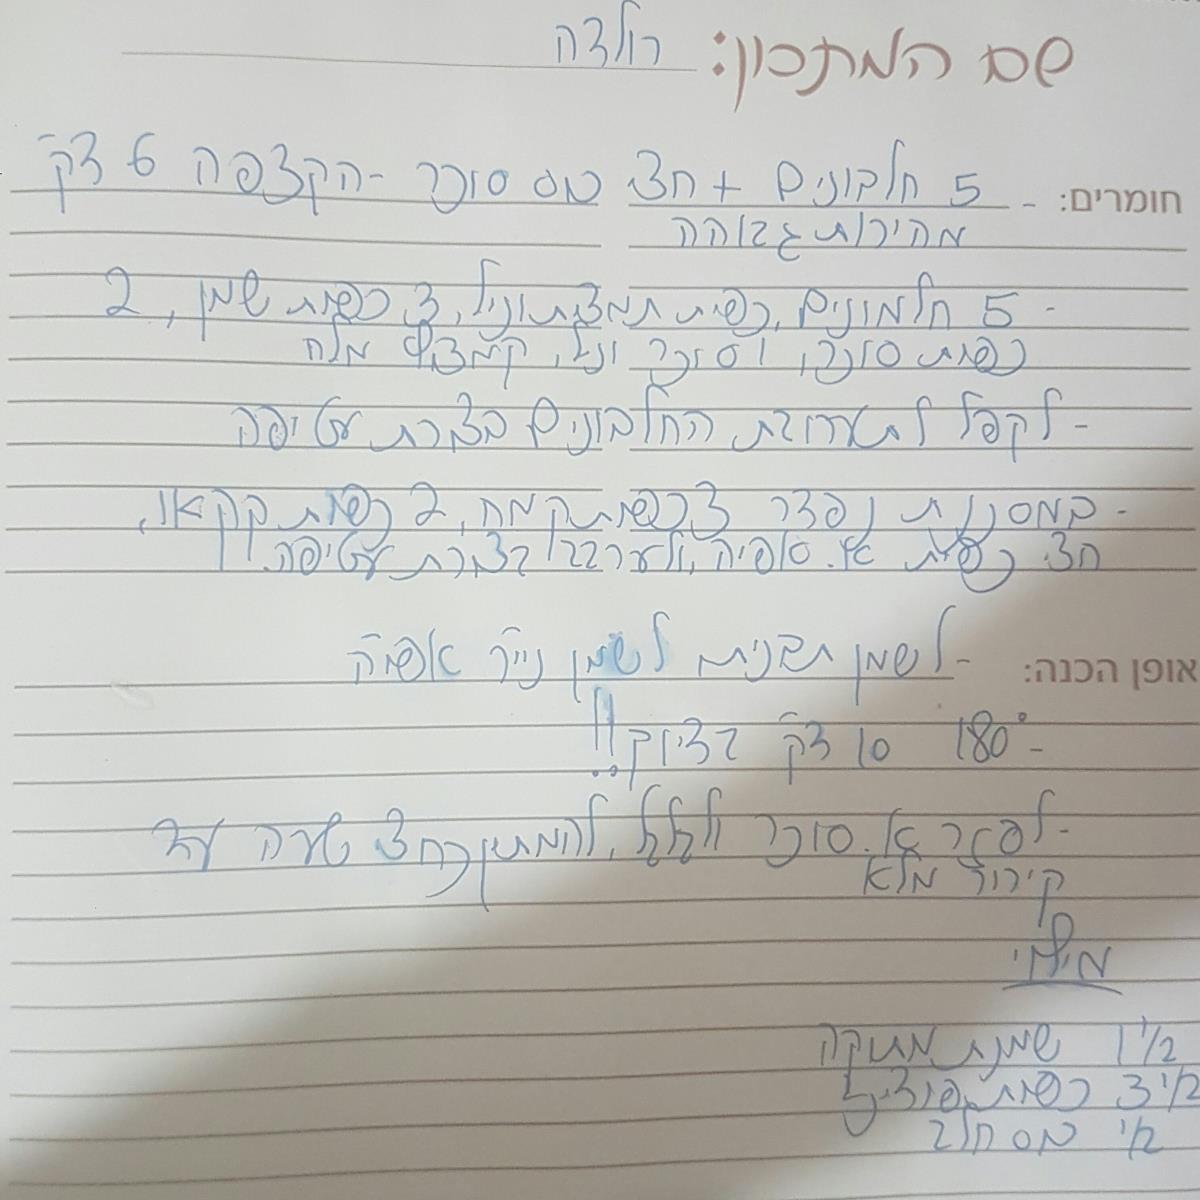 שם המתכון: רולדה
חומרים: - 5 חלבונים + חצי כוס סוכר - הקצפה 6 דק'
מהירות גבוהה
- 5 חלמונים, כפית תמצית וניל, 3 כפות שמן, 2
כפות סוכר, 1 סוכר וניל, קמצוץ מלח
- לקפל לתערובת החלבונים בצורת עטיפה
- במסננת נפדר 3 כפות קמח, 2 כפות קקאו,
חצי כפית א. אפיה, ולערבב בצורת עטיפה.
אופן הכנה: - לשמן תבנית לשמן נייר אפיה
- 180° 10 דק' בדיוק!!
- לפזר א. סוכר ולגלגל, להמתין כחצי שעה עד
קירור מלא
מילוי
1 1/2 שמנת מתוקה
3 1/2 כפות פודינג
1/2 כוס חלב